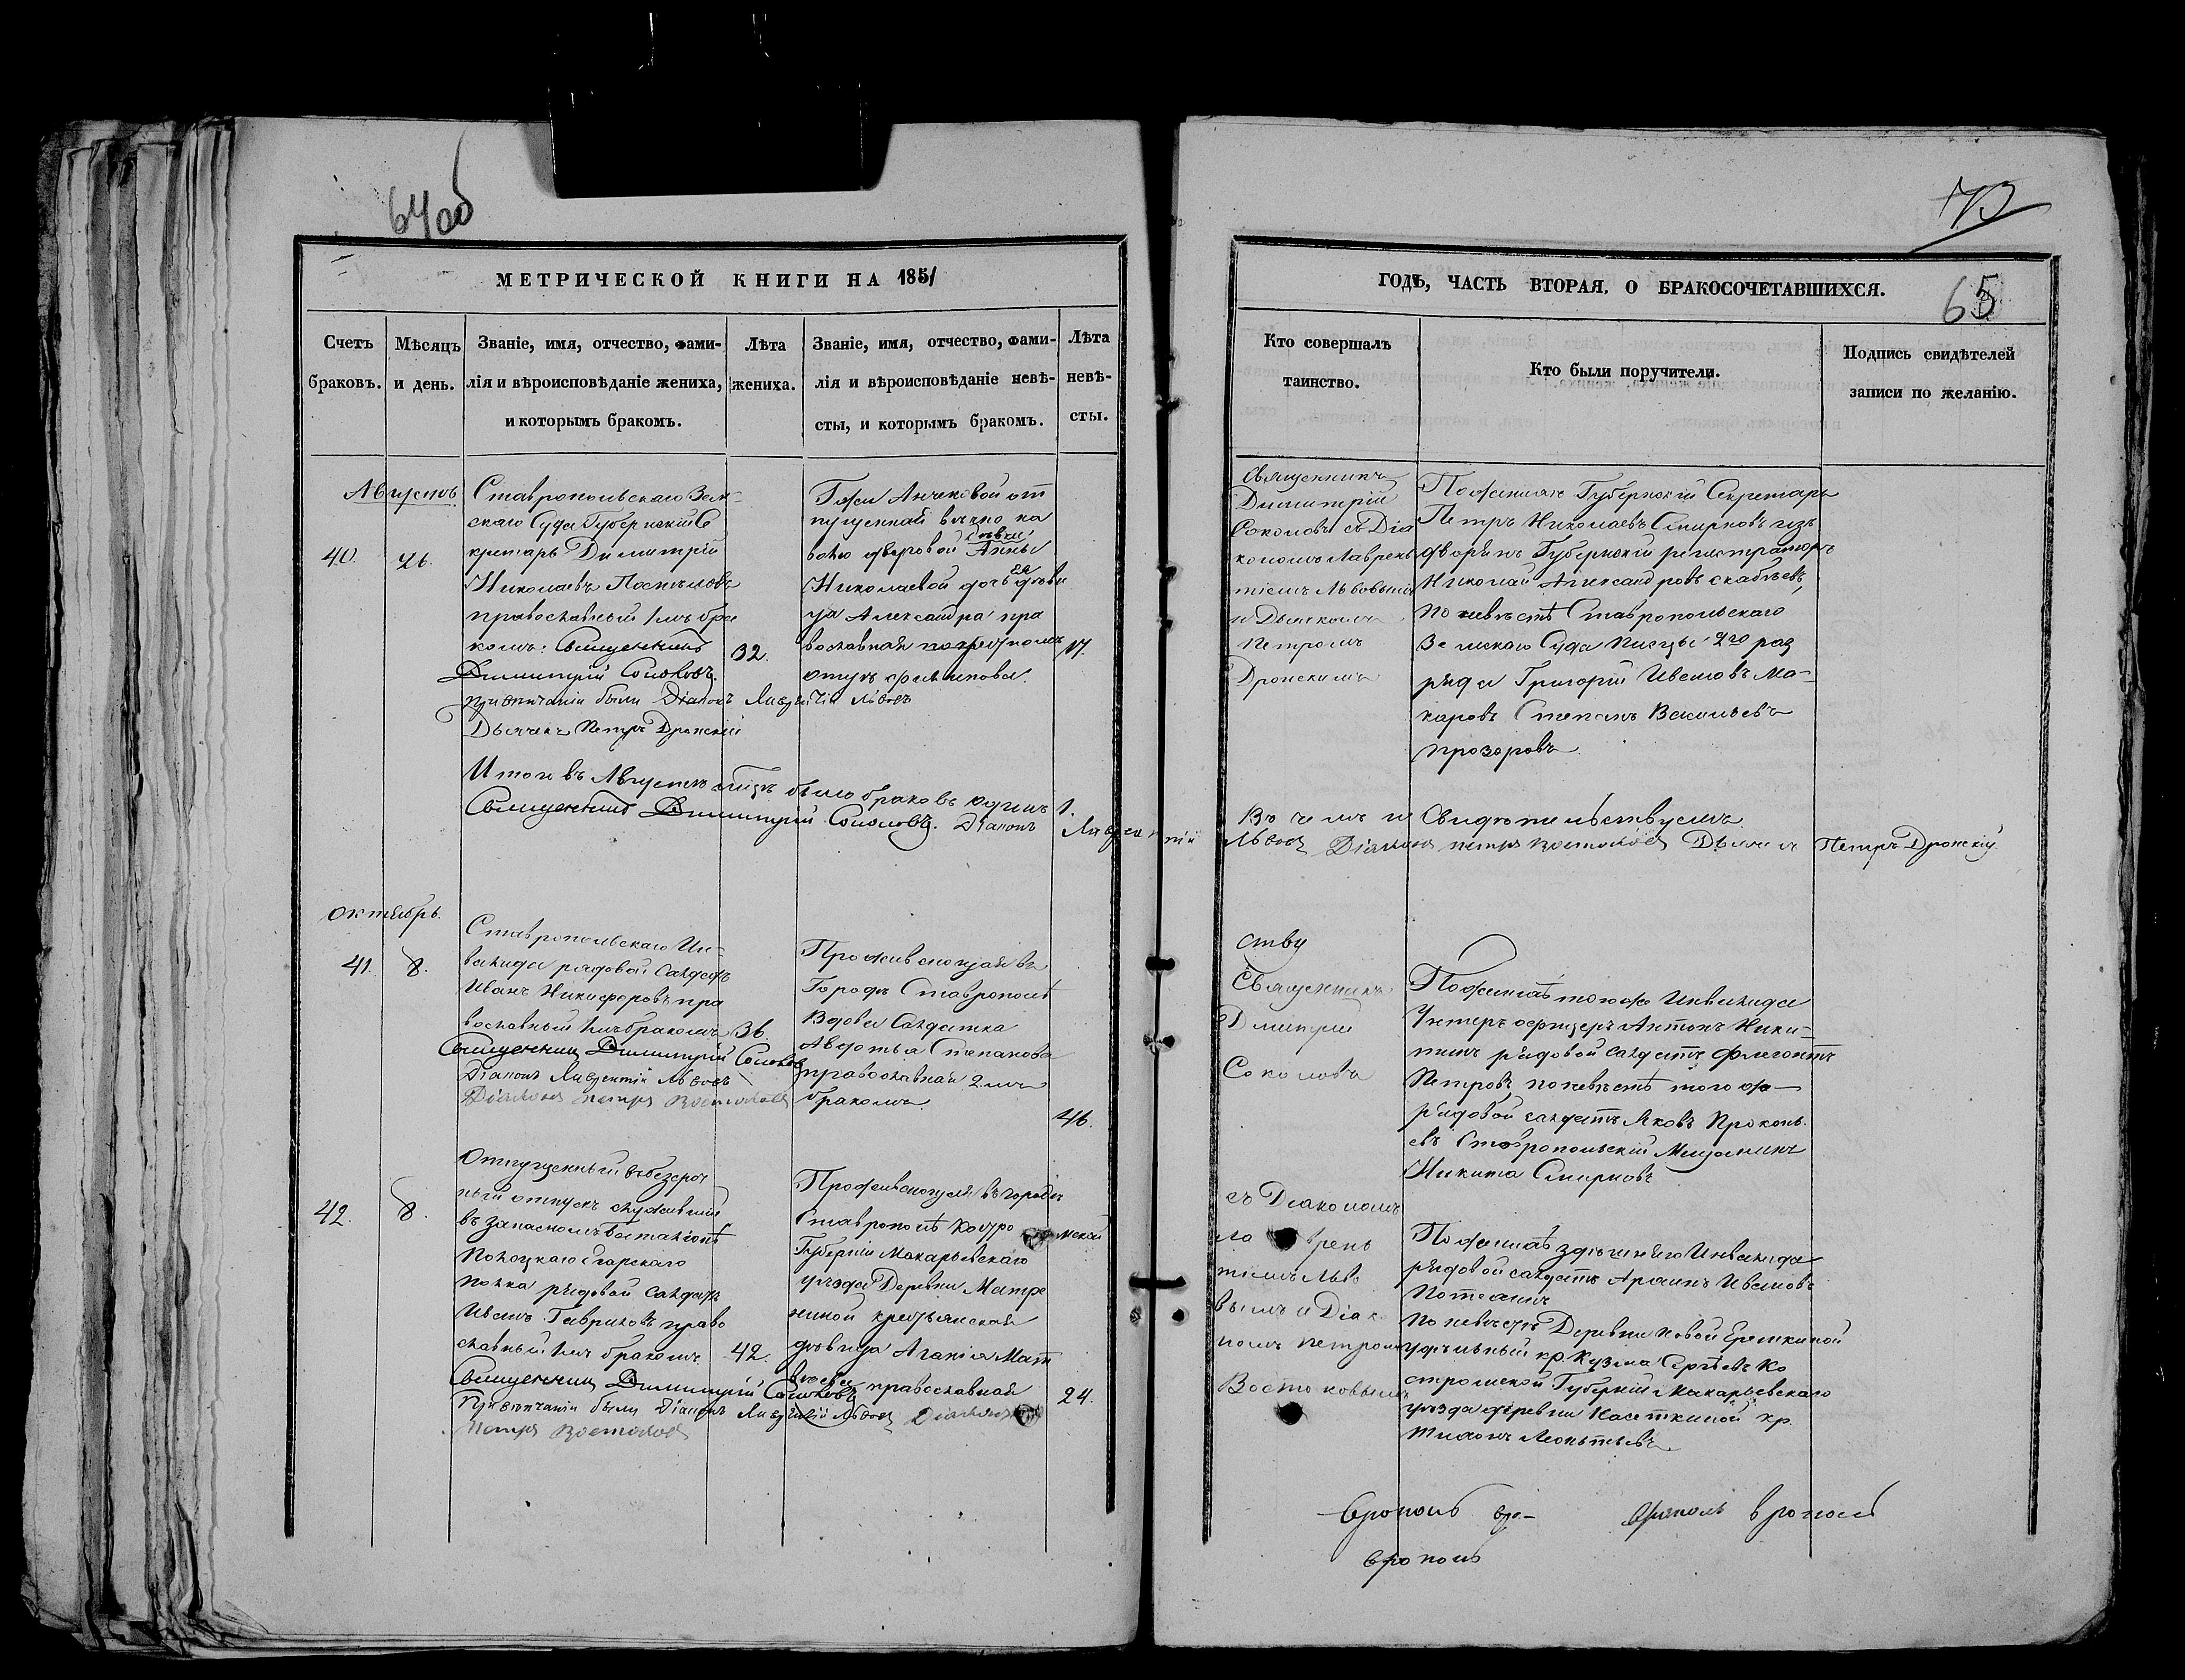 64об
73
МЕТРИЧЕСКОЙ КНИГИ НА 1851
Счетъ браковъ.
Мѣсяцъ и день.
Званіе, имя, отчество, фами-
лія и вѣроисповѣданіе жениха,
и которымъ бракомъ.
Лѣта жениха.
Званіе, имя, отчество, фами-
лія и вѣроисповѣданіе невѣ-
сты, и которымъ бракомъ.
Лѣта невѣ-
сты.
Августъ
40.
26.
Ставропольскаго Зем-
скаго Суда Губернскій Се
кретарь Димитрій
Николаевъ
православный 1мъ бра
комъ. Священникъ
Димитрій Соколовъ.
при вѣнчаніи были Діаконъ Лаврентій Львовъ
Дьячекъ Петръ Дронскій
32.
Г-жи Аничковой от
пущенной вѣчно на
волю дворовой дѣвки Анны
Николаевой дочь ея дѣви
ца Александра пра
вославная по крестному
отцу Филиппова.
17.
Итого въ Августѣ мѣсяцѣ было браковъ одинъ 1.
Священникъ Димитрій Соколовъ. Діаконъ Лаврентій
Октябрь.
41.
8.
Ставропольскаго Ин-
валида рядовой Салдатъ
Иванъ Никифоровъ пра
вославный 1мъ бракомъ
Священникъ Димитрій Соколовъ
Діаконъ Лаврентій Львовъ
Діаконъ Петръ Востоковъ
36.
Проживающая въ
Городѣ Ставрополѣ
Вдова Салдатка
Авдотья Степанова
православная 2мъ
бракомъ
46.
42.
8.
Отпущенный въ безсроч
ный отпускъ служившій
въ запасномъ баталіонѣ
Полоцкаго Егарскаго
полка рядовой Салдатъ
Иванъ Гавриловъ право
славный 1мъ бракомъ
Священникъ Димитрій Соколовъ
При вѣнчаніи были Діаконъ Лаврентій Львовъ Діаконъ
Петръ Востоковъ
42.
Проживающая въ городѣ
Ставрополѣ Костро мской
Губерніи Макарьевскаго
уѣзда Деревни Матре
ниной крестьянская
дѣвица Агапія Мат
вѣева православная
24.
ГОДЪ, ЧАСТЬ ВТОРАЯ, О БРАКОСОЧЕТАВШИХСЯ.
65
Кто совершалъ
таинство.
Кто были поручители.
Подпись свидѣтелей
записи по желанію.
Священникъ
Димитрій
Соколовъ съ Діа
кономъ Лаврен
тіемъ Львовымъ
и Дьячкомъ
Петромъ
Дронскимъ
По женихѣ Губернскій Секретарь
Петръ Николаевъ Смирновъ изъ
дворянъ Губернскій регистраторъ
Николай Александровъ Скабѣевъ,
по невѣстѣ Ставропольскаго
Земскаго Суда писцы 2го раз
ряда Григорій Ивановъ Ма-
каровъ Степанъ Васильевъ
Прозоровъ
Въ чемъ и Свидѣтельствуемъ
Львовъ Діаконъ Петръ Востоковъ Дьячекъ Петръ Дронскій
ству
Священникъ
Дмитрій
Соколовъ
По женихѣ тогоже Инвалида
Унтеръ офицеръ Антонъ Ники-
тинъ рядовой салдатъ Флегонтъ
Петровъ, по невѣстѣ того же
рядовой салдатъ Яковъ Прокопь
евъ Ставропольскій Мещанинъ
Никита Смирновъ
съ Діакономъ
Ла врен
тіемъ Льво
вымъ и Діак
номъ Петромъ
Востоковымъ
По женихѣ здѣшняго Инвалида
рядовой салдатъ Иванов
По невѣстѣ Деревни Новой Еремкиной
удѣльный кр. Кузма Сергѣевъ Ко
стромской Губерніи Макарьевскаго
уѣзда деревни Касаткиной кр.
Тихонъ Леонтьевъ
врополь вро- врополь врополь
врополь